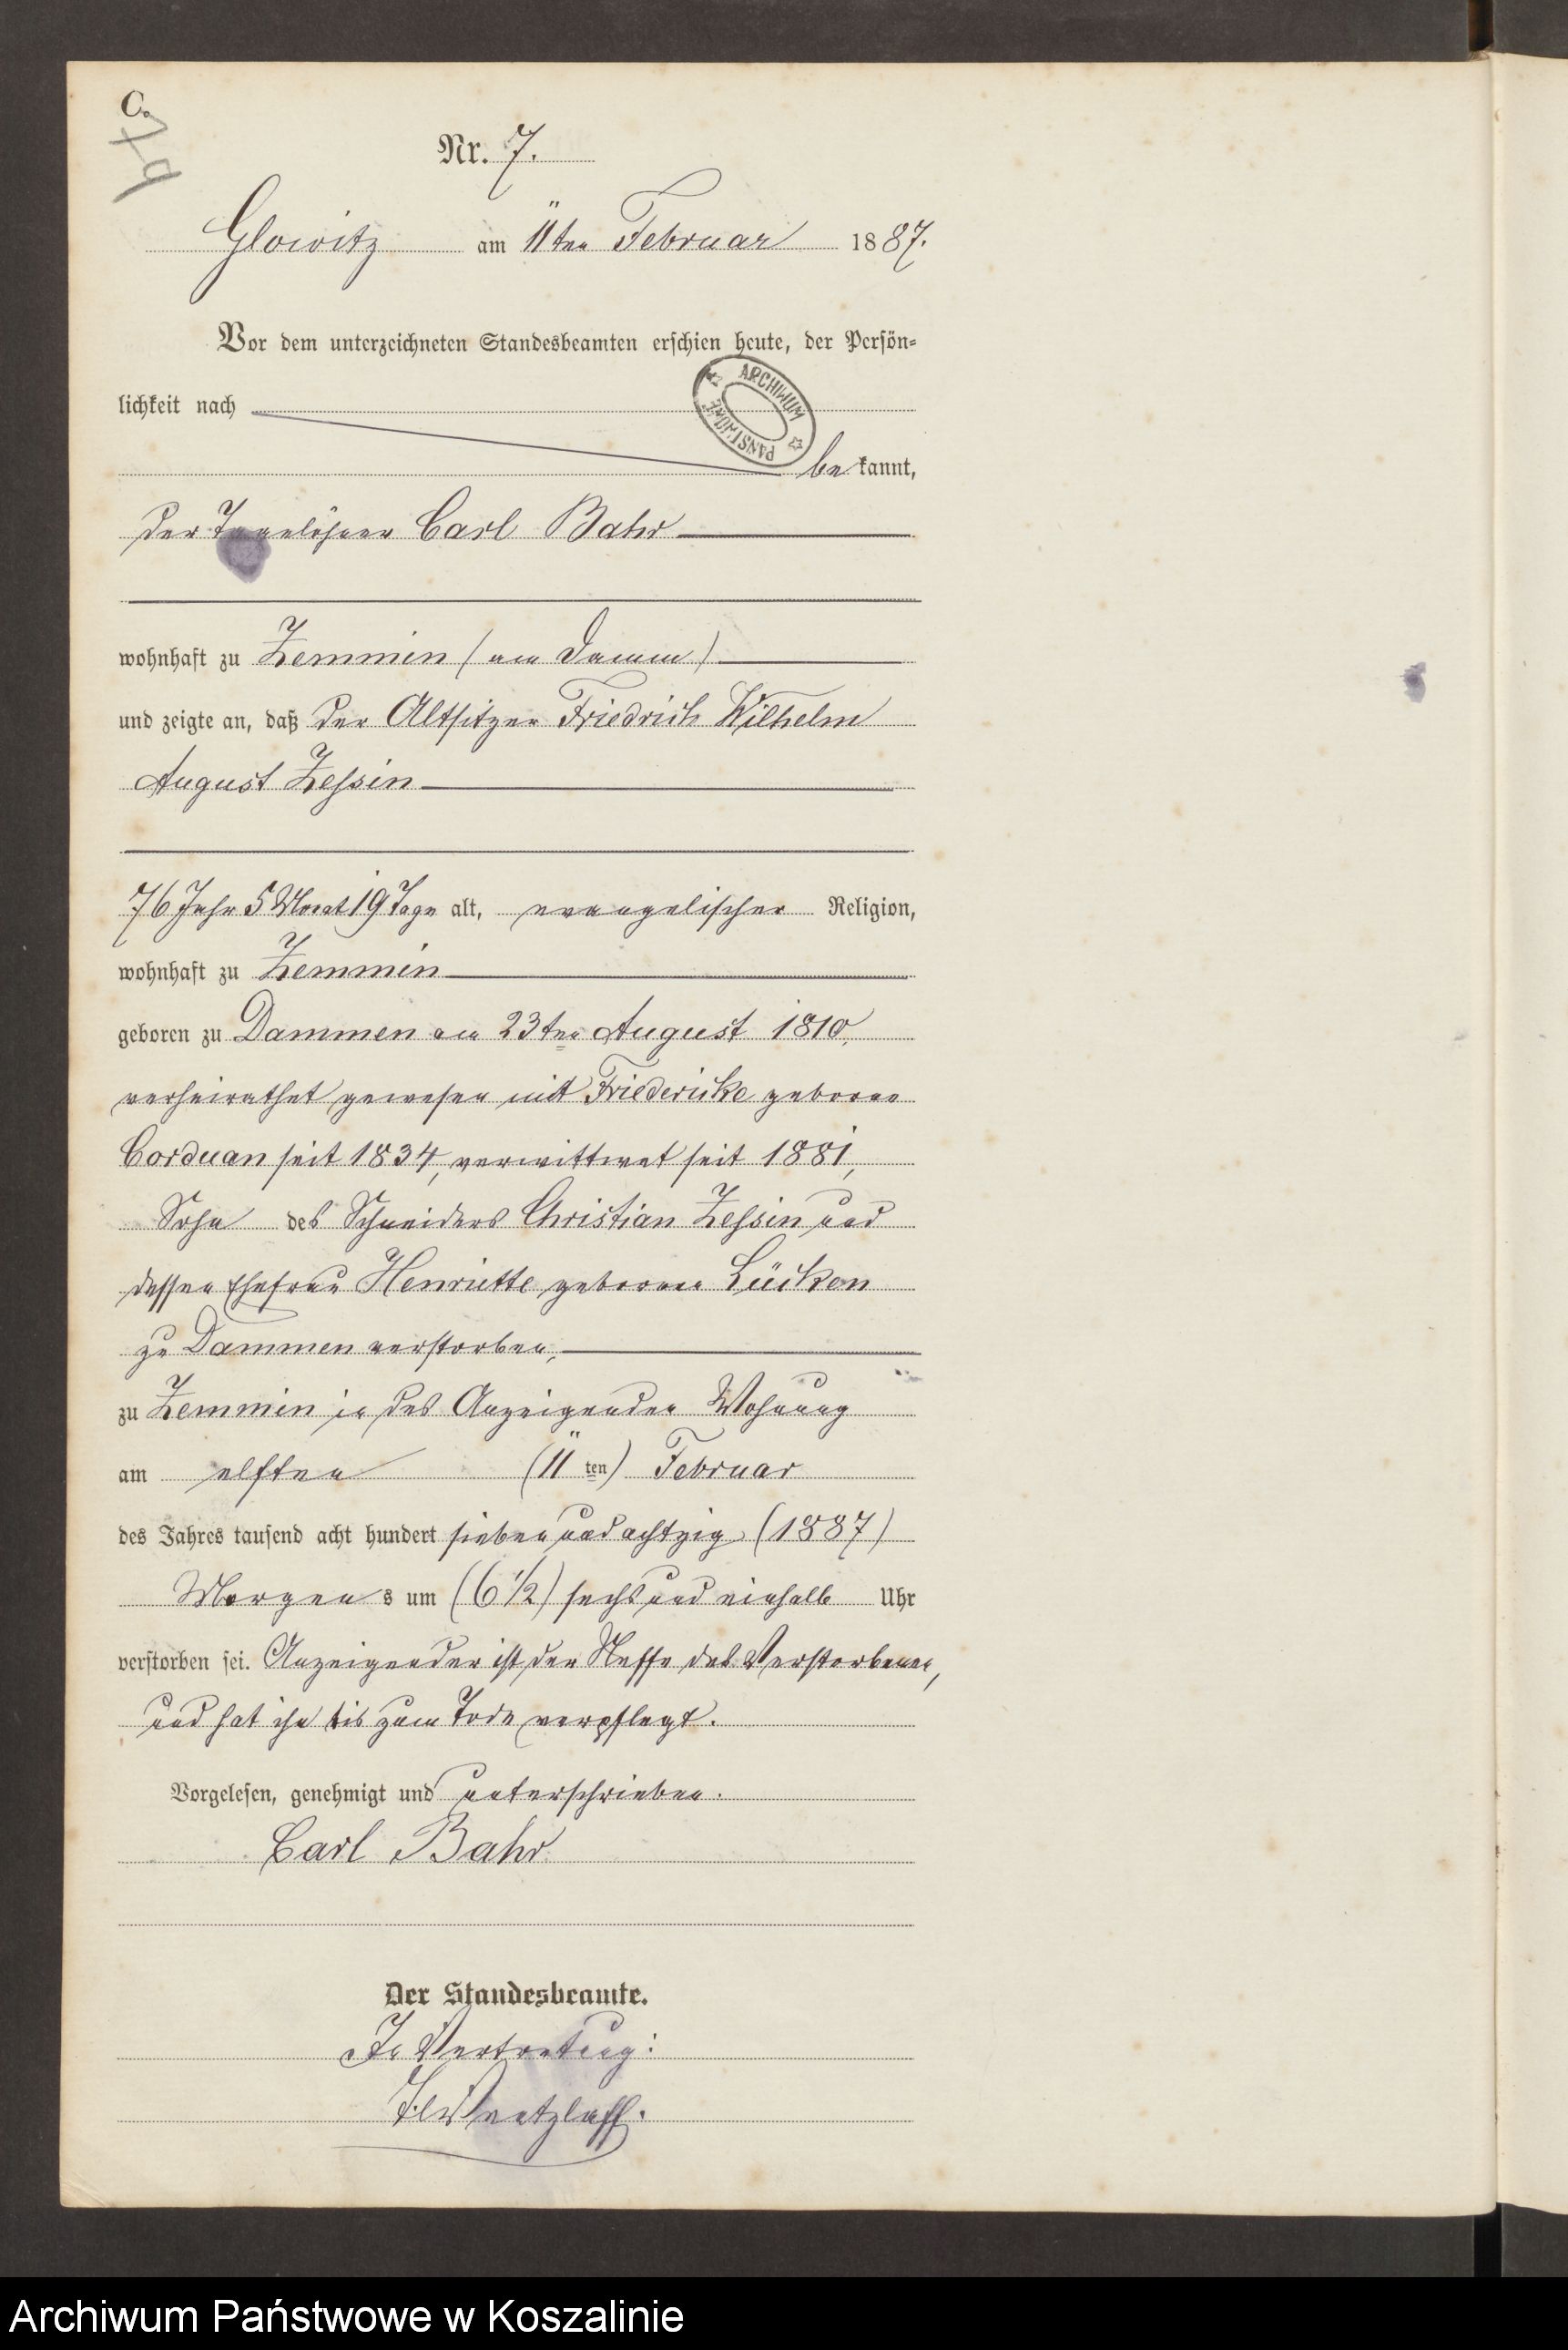 C.
Nr. 7.
Glowitz am 11ten Februar 1887.
Vor dem unterzeichneten Standesbeamten erschien heute, der Persön-
lichkeit nach
ARCHIWUM PAŃSTWOWE
be kannt,
der Tagelöhner Carl Bahr
wohnhaft zu Zemmin (am Damm)
und zeigte an, daß der Altsitzer Friedrich Wilhelm
August Zessin
76 Jahr 5 Monat 19 Tage alt, evangelischer Religion,
wohnhaft zu Zemmin
geboren zu Dammen am 23ten August 1810,
verheirathet gewesen mit Friedericke geborne
Corduan seit 1834, verwittwet seit 1881,
Sohn des Schneiders Christian Zessin und
dessen Ehefrau Henriette geborner Lücken
zu Dammen verstorben,
zu Zemmin in des Anzeigenden Wohnung
am elften (11 ten) Februar
des Jahres tausend acht hundert sieben und achtzig (1887)
Morgen s um (6 1/2) sechs und einhalb Uhr
verstorben sei. Anzeigender ist der Neffe des Verstorbenen,
und hat ihn bis zum Tode verpflegt.
Vorgelesen, genehmigt und unterschrieben.
Carl Bahr
Der Standesbeamte.
In Vertretung:
Archiwum Państwowe w Koszalinie